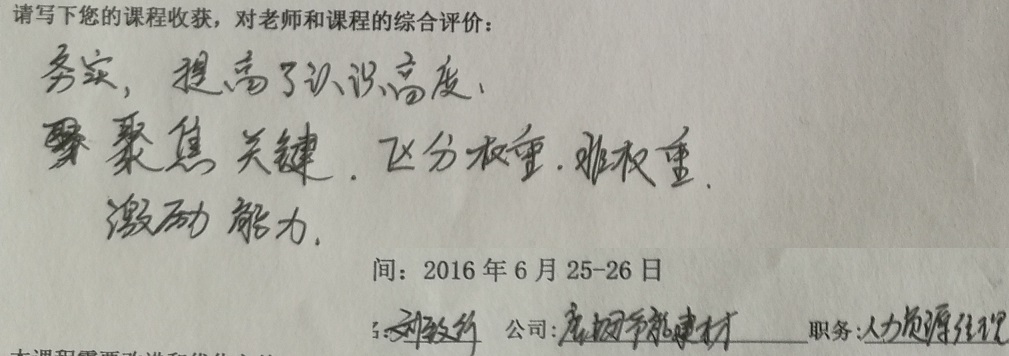 请写下您的课程收获，对老师和课程的综合评价：
务实，提高了认识高度.
聚焦 关键.区分权重.非权重.
激励能力.
间：2016年6月25-26日
名:刘 公司:节能建材 职务:人力资源经理